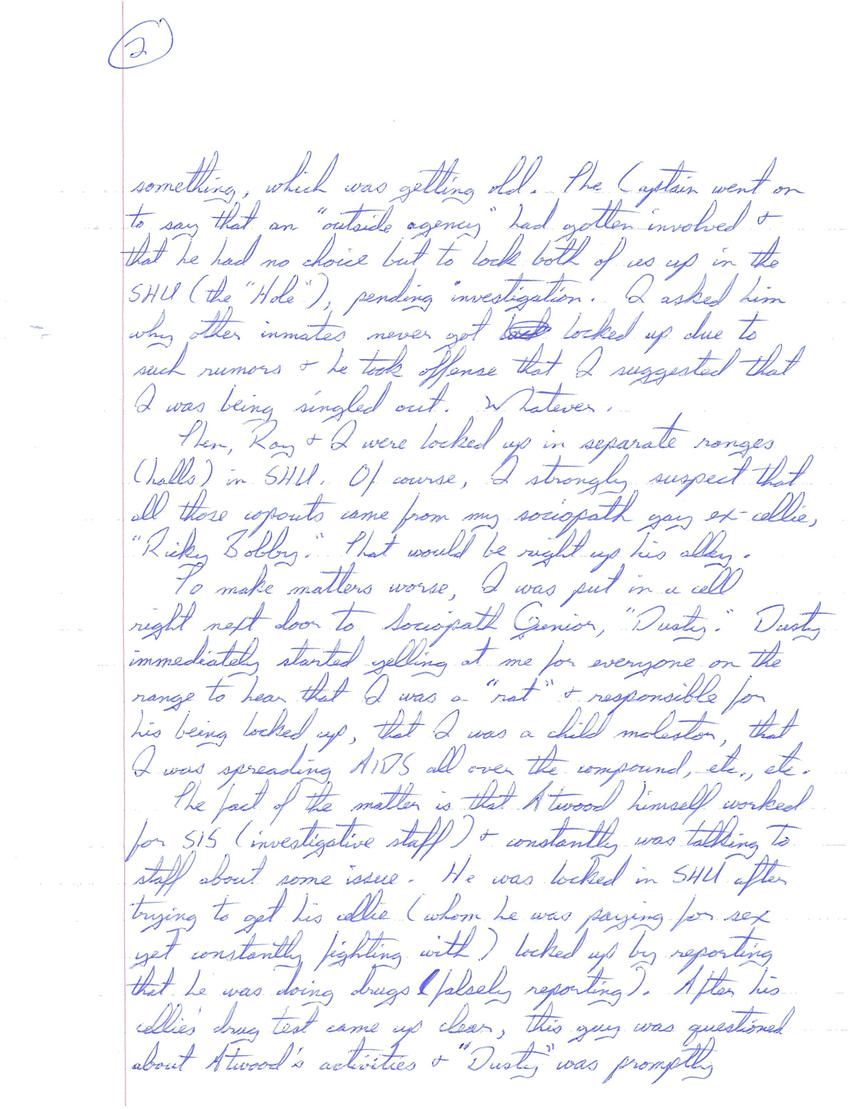 2
something, which was getting old. The Captain went on
to say that an "outside agency" had gotten involved &
that he had no choice but to lock both of us up in the
SHU (the "Hole"), pending investigation. I asked him
why other inmates never got locked up due to
such rumors & he took offense that I suggested that
I was being singled out. Whatever.
Then, Ray & I were locked up in separate ranges
(halls) in SHU. Of course, I strongly suspect that
all those copouts came from my sociopath gay ex-cellie,
"Ricky Bobby." That would be right up his alley.
To make matters worse, I was put in a cell
right next door to Sociopath Senior, "Dusty." Dusty
immediately started yelling at me for everyone on the
range to hear that I was a "rat" & responsible for
his being locked up, that I was a child molestor, that
I was spreading AIDS all over the compound, etc., etc.
The fact of the matter is that Atwood himself worked
for SIS (investigative staff) & constantly was talking to
staff about some issue. He was locked in SHU after
trying to get his cellie (whom he was paying for sex
yet constantly fighting with) locked up by reporting
that he was doing drugs (falsely reporting). After his
cellie's drug test came up clear, this guy was questioned
about Atwood's activities & "Dusty" was promptly